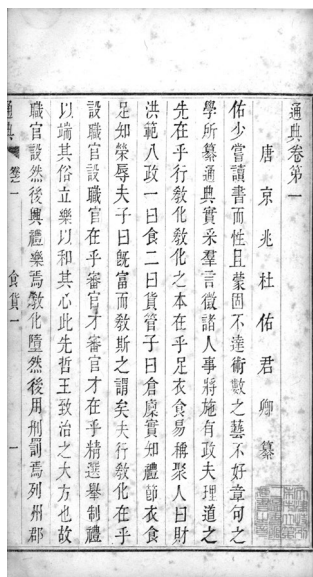 通典卷第一
唐京兆杜佑君卿纂
佑少嘗讀書而性且蒙固不達術數之藝不好章句之
學所纂通典實采羣言徵諸人事將施有政夫理道之
先在乎行敎化敎化之本在乎足衣食易稱聚人曰財
洪範八政一曰食二曰貨管子曰倉廩實知禮節衣食
足知榮辱夫子曰既富而敎斯之謂矣夫行敎化在乎
設職官設職官在乎審官才審官才在乎精選舉制禮
以端其俗立樂以和其心此先哲王致治之大方也故
職官設然後興禮樂焉敎化隳然後用刑罰焉列州郡
通典 卷一 食貨一 一